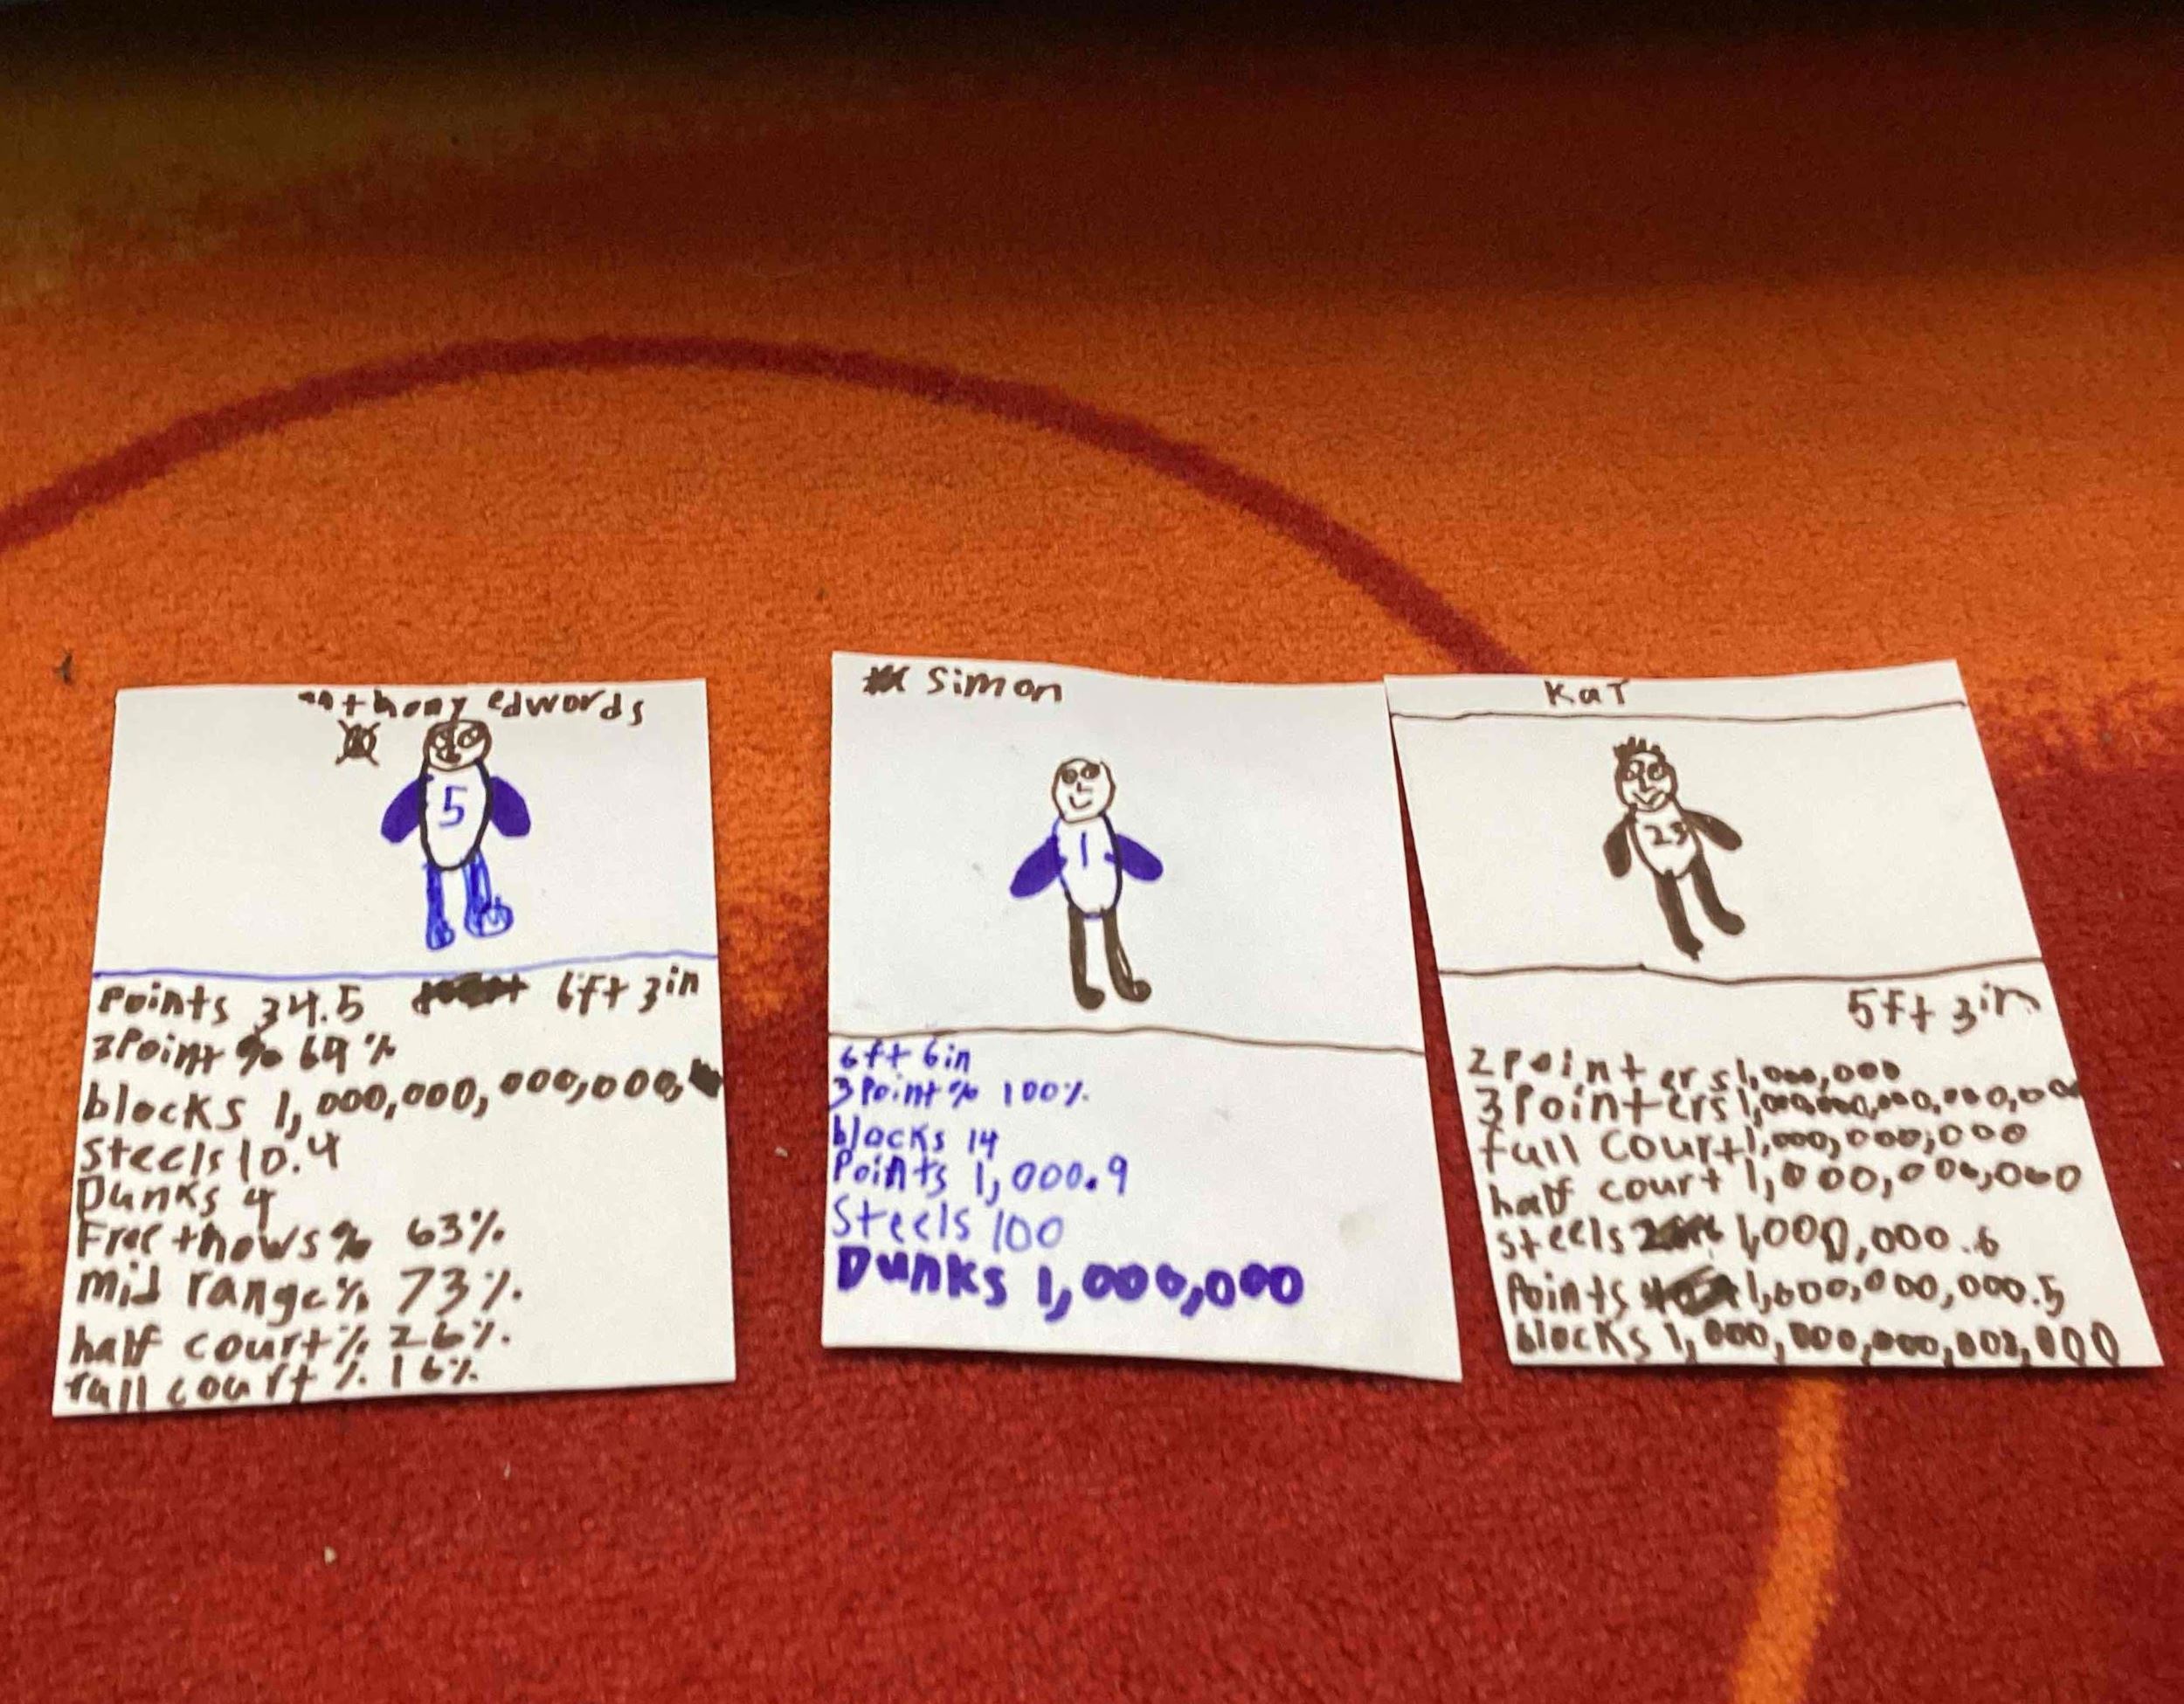 anthony edwords
5
Points 34.5 6ft 3in
3Point % 69%
blocks 1,000,000,000,000,
Steels 10.4
Dunks 4
Free thows % 63%
mid range% 73%
half court% 26%
full court% 16%
Simon
1
6ft 6in
3Point% 100%
blocks 14
Points 1,000.9
Steels 100
Dunks 1,000,000
Kat
23
5ft 3in
2Pointers 1,000,000
3Pointers 1,000,000,000,000,000
full court 1,000,000,000
half court 1,000,000,000
steels 1,000,000.6
Points 1,000,000,000.5
blocks 1,000,000,000,000,000